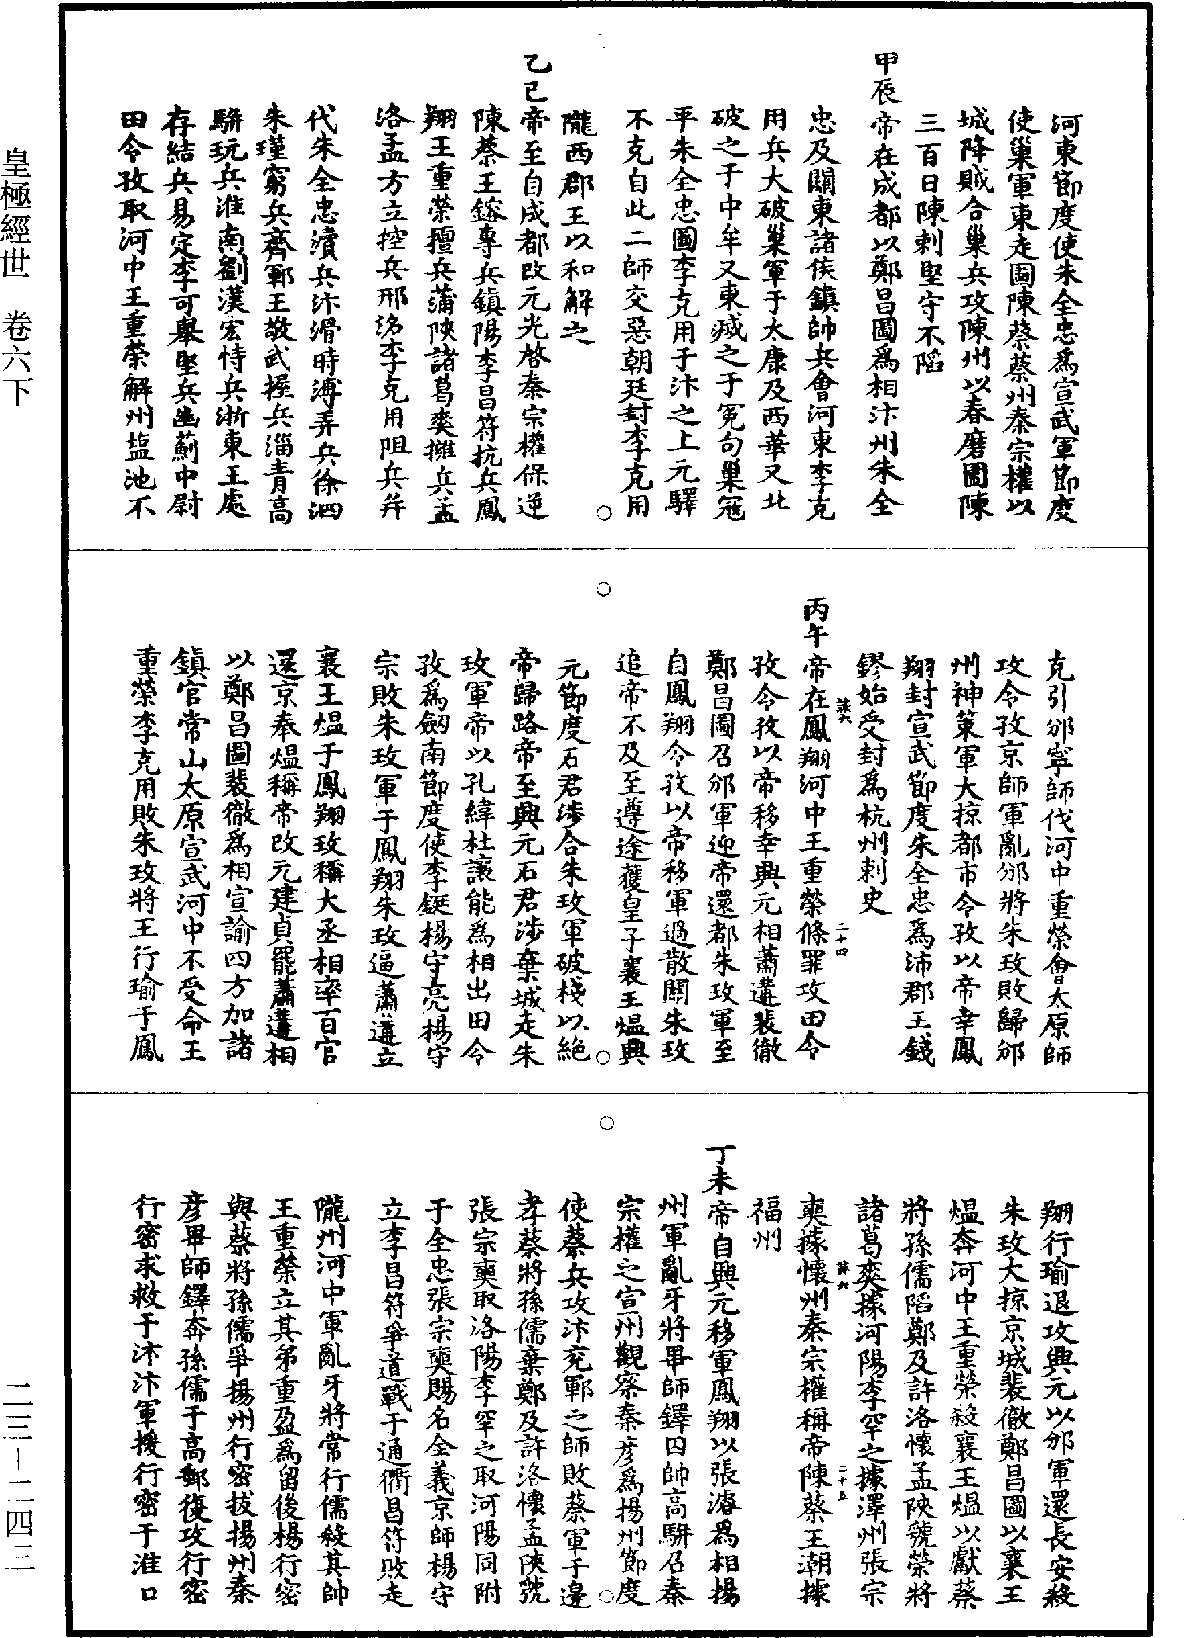 皇極經世　卷六下
河東節度使朱全忠爲宣武軍節度
使巢軍東走圍陳蔡蔡州秦宗權以
城降賊合巢兵攻陳州以舂磨圍陳
三百日陳刺堅守不陷
甲辰帝在成都以鄭昌圖爲相汴州朱全
忠及關東諸侯鎮帥兵會河東李克
用兵大破巢軍于太康及西華又北
破之于中牟又東滅之于冤句巢寇
平朱全忠圖李克用于汴之上元驛
不克自此二師交惡朝廷封李克用
隴西郡王以和解之
乙巳帝至自成都改元光啓秦宗權保逆
陳蔡王鎔專兵鎮陽李昌符抗兵鳳
翔王重榮擅兵蒲陝諸葛爽擁兵孟
洛孟方立控兵邢洺李克用阻兵并
代朱全忠瀆兵汴滑時溥弄兵徐泗
朱瑾窮兵齊鄆王敬武握兵淄青高
駢玩兵淮南劉漢宏恃兵浙東王處
存結兵易定李可舉堅兵幽薊中尉
田令孜取河中王重榮解州塩池不
克引邠寧師伐河中重榮會太原師
攻令孜京師軍亂邠將朱玫敗歸邠
州神策軍大掠都市令孜以帝幸鳳
翔封宣武節度朱全忠爲沛郡王錢
鏐始受封爲杭州刺史
丙午帝在鳳翔河中王重榮條罪攻田令
孜令孜以帝移幸興元相蕭遘裴徹
鄭昌圖召邠軍迎帝還都朱玫軍至
自鳳翔令孜以帝移軍過散關朱玫
追帝不及至遵途獲皇子襄王熅興
元節度石君涉合朱玫軍破棧以絕
帝歸路帝至興元石君涉棄城走朱
玫軍帝以孔緯杜讓能爲相出田令
孜爲劒南節度使李鋋楊守亮楊守
宗敗朱玫軍于鳳翔朱玫逼蕭遘立
襄王熅于鳳翔玫稱大丞相率百官
還京奉熅稱帝改元建貞罷蕭遘相
以鄭昌圖裴徹爲相宣諭四方加諸
鎮官常山太原宣武河中不受命王
重榮李克用敗朱玫將王行瑜于鳳
翔行瑜退攻興元以邠軍還長安殺
朱玫大掠京城裴徹鄭昌圖以襄王
熅奔河中王重榮殺襄王熅以獻蔡
將孫儒陷鄭及許洛懷孟陝虢榮將
諸葛爽據河陽李罕之據澤州張宗
奭據懷州秦宗權稱帝陳蔡王潮據
福州
丁未帝自興元移軍鳳翔以張濬爲相揚
州軍亂牙將畢師鐸囚帥高駢召秦
宗權之宣州觀察秦彦爲揚州節度
使蔡兵攻汴兖鄆之師敗蔡軍于邊
孝蔡將孫儒棄鄭及許洛懷孟陝虢
張宗奭取洛陽李罕之取河陽同附
于全忠張宗奭賜名全義京師楊守
立李昌符爭道戰于通衢昌符敗走
隴州河中軍亂牙將常行儒殺其帥
王重榮立其弟重盈爲留後楊行密
與蔡將孫儒爭揚州行密拔揚州秦
彦畢師鐸奔孫儒于高郵復攻行密
行密求救于汴汴軍援行密于淮口
二三－二四三